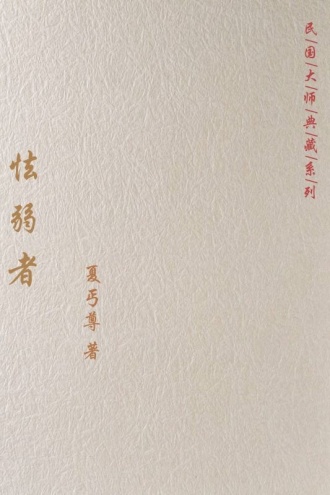 民|国|大|师|典|藏|系|列
怯弱者
夏丏尊 著